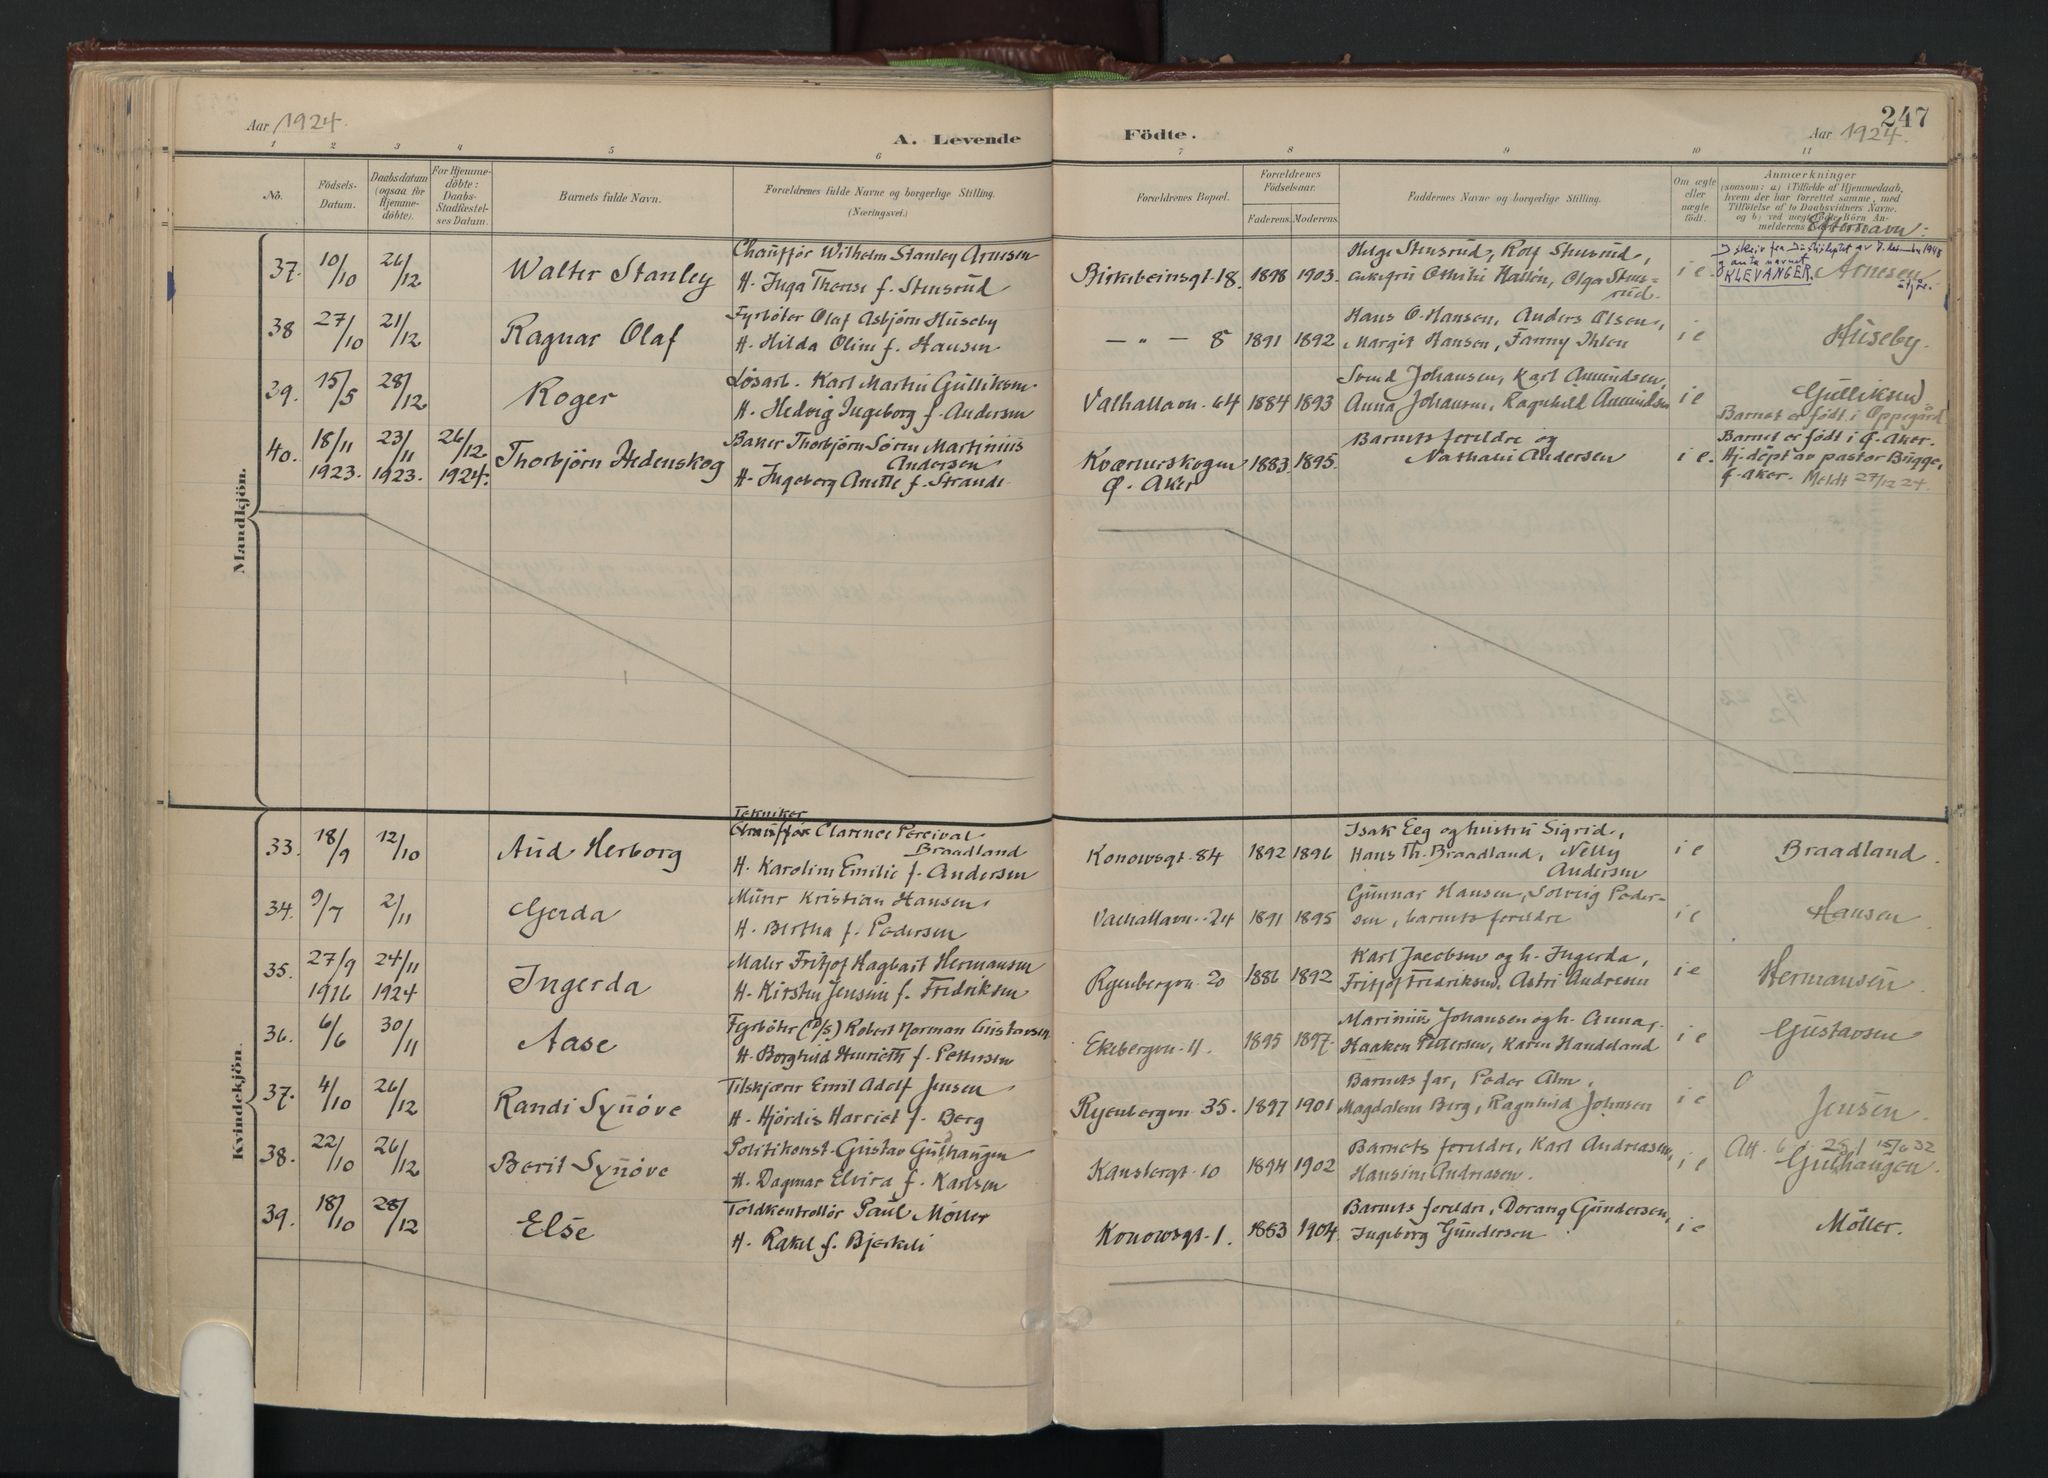 247
Aar 1924.
A. Levende
Födte.
Aar 1924.
1 2 3 4 5 6 7 8 9 10 11
No.
Födsels-
Datum.
Daabsdatum
(ogsaa for
Hjemme-
döbte).
For Hjemme-
döbte:
Daabs-
Stadfæstel-
ses Datum.
Barnets fulde Navn.
Forældrenes fulde Navne og borgerlige Stilling.
(Næringsvei.)
Forældrenes Bopæl.
Forældrenes
Födselsaar.
Faderens. Moderens.
Faddernes Navne og borgerlige Stilling.
Om ægte
eller
uægte
födt.
Anmærkninger
(saasom: a) i Tilfælde af Hjemmedaab,
hvem der har forrettet samme, med
Tilföielse af to Daabsvidners Navne,
og b) ved uegtefödte Börn An-
melderens
Efternavn:
Mandkjön.
37. 10/10 26/12 Walter Stanley
Chaufför Wilhelm Stanley Arnesen
H. Inga Therese f. Stensrud
Birkebeinsgt. 18. 1898 1903.
Helge Stensrud, Rolf Stensrud,
enkefru Othilie Hallén, Olga Stens-
rud.
i e.
av 7. desember 1948
å anta navnet
KLEVANGER.
Arnesen
38 27/10 21/12 Ragnar Olaf
Fyrböter Olaf Asbjörn Huseby
H. Hilda Oline f. Hansen
— " — 8 1891 1892
Hans O. Hansen, Anders Olsen,
Margit Hansen, Fanny Ihlen
i e
Huseby.
39. 15/5 28/12 Roger
Lösarb. Karl Martin Gulliksen
H. Hedvig Ingeborg f. Andersen
Valhallavn. 64 1884 1893
Svend Johansen, Karl Amundsen,
Anna Johansen, Ragnhild Amundsen
i e
Gulliksen
Barnet er födt i Oppegård
40. 18/11 1923. 23/11 1923. 26/12 1924. Thorbjörn Hedenskog
Baker Thorbjörn Sören Martinius
Andersen
H. Ingeborg Anette f. Strande
Kværnerskogen
Ö. Aker
1883. 1895.
Barnets foreldre og
Nathalie Andersen
i e.
Barnet er födt i Ö. Aker.
Hj. döpt av pastor Bugge,
Ö. Aker. Meldt 27/12 24.
Kvindekjön.
33. 18/9 12/10 Aud Herborg
Tekniker
Chaufför Clarence Percival
Braadland
H. Karoline Emilie f. Andersen
Konowsgt. 84 1892 1896
Isak Eeg og hustru Sigrid,
Hans Th. Braadland, Nelly
Andersen
i e
Braadland.
34. 9/7 2/11 Gerda
Murer Kristian Hansen
H. Bertha f. Pedersen
Valhallavn. 24 1891 1895
Gunnar Hansen, Solveig Peder-
sen, barnets foreldre
i e
Hansen
35. 27/9 1916 24/11 1924 Ingerda
Maler Fritjof Hagbart Hermansen
H. Kirsten Jensine f. Fredriksen
Ryenbergvn. 20 1886 1892
Karl Jacobsen og h. Ingerda,
Fritjof Fredriksen, Astri Andresen
i e
Hermansen
36. 6/6 30/11 Aase
Fyrböter (D/S) Robert Norman Gustavsen
H. Borghild Henriette f. Pettersen
Ekebergvn. 11. 1895 1897.
Marinius Johansen og h. Anna,
Haaken Pettersen, Karen Handeland
i e
Gustavsen
37. 4/10 26/12 Randi Synöve
Tilskjærer Emil Adolf Jensen
H. Hjördis Harriet f. Berg
Ryenbergvn. 35. 1897 1901
Barnets far, Peder Alm,
Magdalene Berg, Ragnhild Johnsen
i e
Jensen
38. 22/10 26/12 Berit Synöve
Politikonst. Gustav Gulhaugen
H. Dagmar Elvira f. Karlsen
Kanslergt. 10 1894 1902
Barnets foreldre, Karl Andreasen,
Hansine Andreasen.
i e
Att. 15/6 32
Gulhaugen.
39. 18/10 28/12 Else
Toldkontrollör Paul Möller
H. Rakel f. Bjerkeli
Konowsgt. 1. 1883 1904.
Barnets foreldre, Gundersen,
Ingeborg Gundersen
i e
Möller.